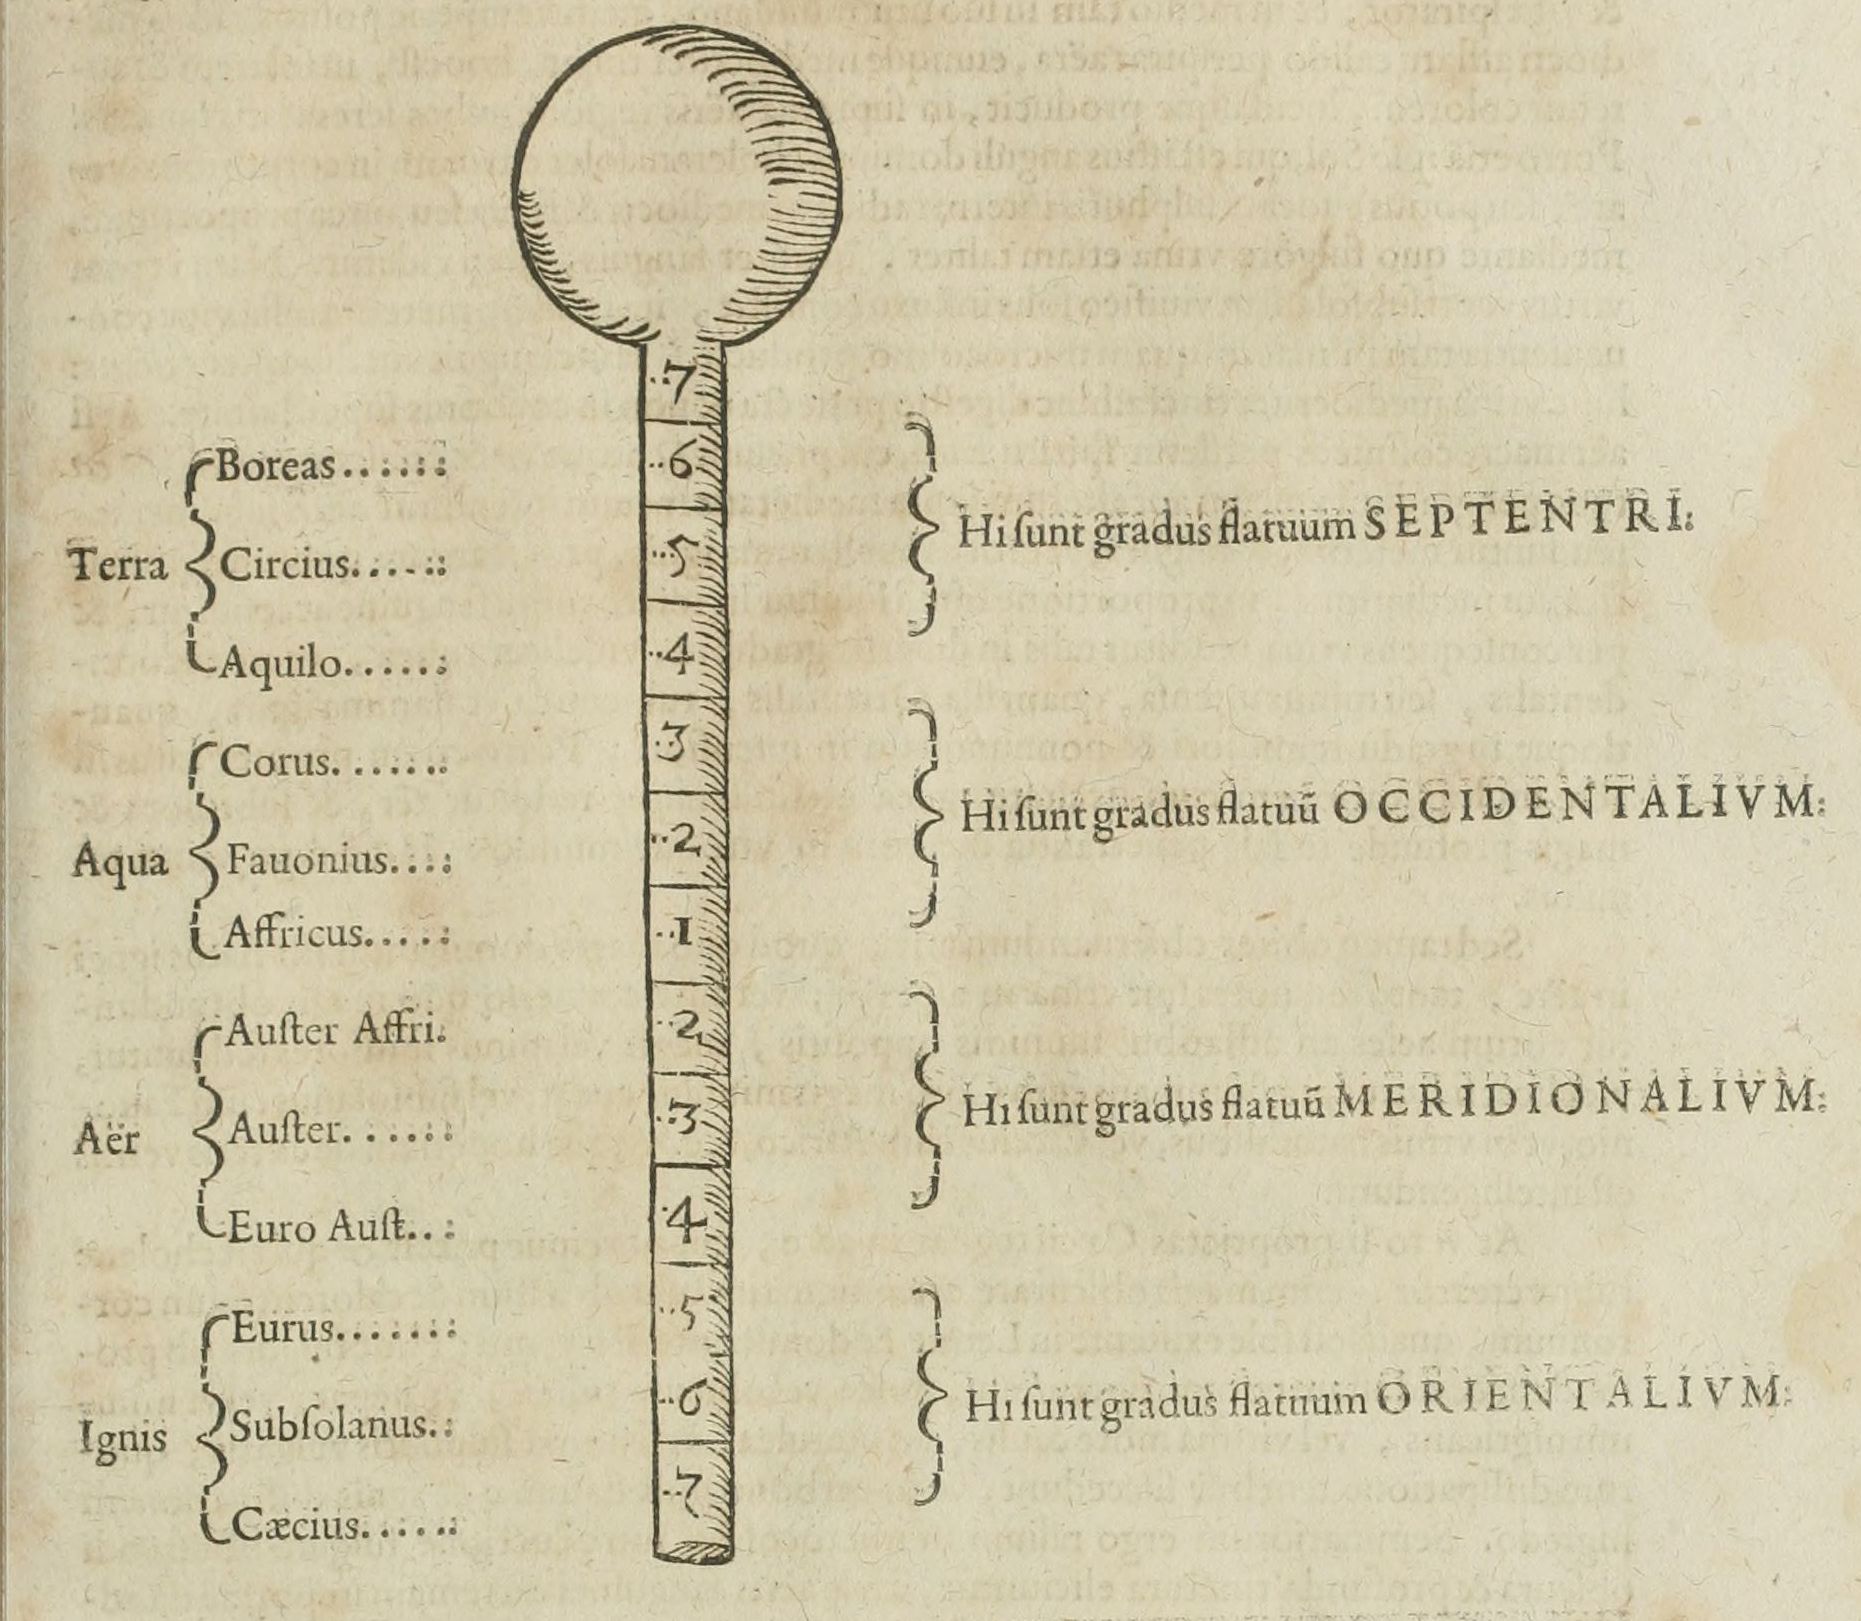 ..7
..6
Boreas......:
Hi ſunt gradus flatuum SEPTENTRI:
...5
Terra
Circius......:
..4
Aquilo......:
..3
Corus.......
Hi ſunt gradus flatuũ OCCIDENTALIVM:
..2
Aqua
Fauonius....:
..1
Affricus.....:
..2
Auſter Affri.
Hi ſunt gradus flatuũ MERIDIONALIVM:
..3
Aër
Auſter......:
..4
Euro Auſt..:
..5
Eurus.......:
Hi ſunt gradus flatuum ORIENTALIVM:
..6
Ignis
Subſolanus.:
..7
Cæcius......